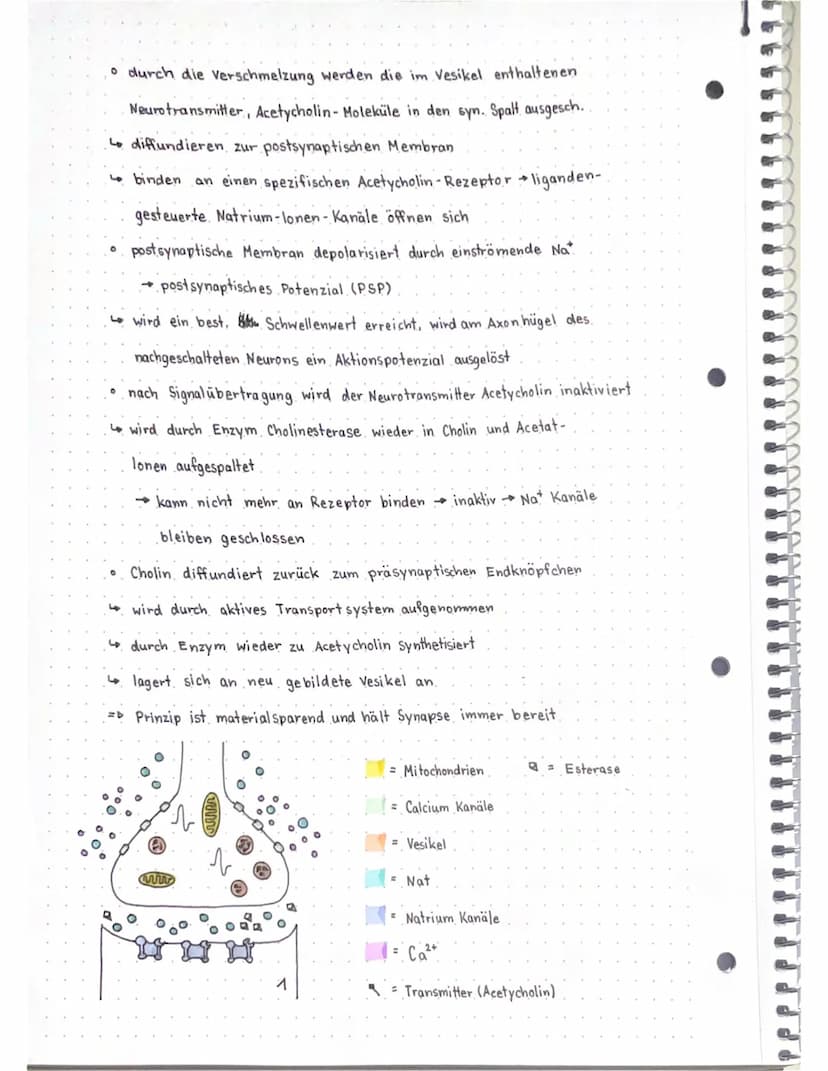 ° durch die Verschmelzung werden die im Vesikel enthaltenen
Neurotransmitter, Acetycholin-Moleküle in den syn. Spalt ausgesch.
↳ diffundieren zur postsynaptischen Membran
↳ binden an einen spezifischen Acetycholin-Rezeptor → liganden-
gesteuerte Natrium-Ionen-Kanäle öffnen sich
° postsynaptische Membran depolarisiert durch einströmende Na⁺
→ postsynaptisches Potenzial (PSP)
↳ wird ein best. Schwellenwert erreicht, wird am Axonhügel des
nachgeschalteten Neurons ein Aktionspotenzial ausgelöst
° nach Signalübertragung wird der Neurotransmitter Acetycholin inaktiviert
↳ wird durch Enzym Cholinesterase wieder in Cholin und Acetat-
Ionen aufgespaltet
→ kann nicht mehr an Rezeptor binden → inaktiv → Na⁺ Kanäle
bleiben geschlossen
° Cholin diffundiert zurück zum präsynaptischen Endknöpfchen
↳ wird durch aktives Transportsystem aufgenommen
↳ durch Enzym wieder zu Acetycholin Synthetisiert
↳ lagert sich an neu gebildete Vesikel an
=> Prinzip ist materialsparend und hält Synapse immer bereit
= Mitochondrien = Esterase
= Calcium Kanäle
= Vesikel
= Nat
= Natrium Kanäle
= Ca²⁺
= Transmitter (Acetycholin)
1